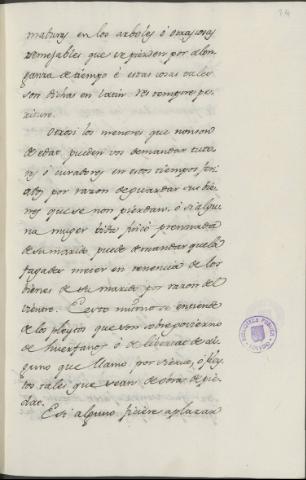 maturas en los arboles ò otras cosas
semejables que se pierden por alon
ganza de tiempo è estas cosas tales
son dichas en latin res tempore pe
riture.
Otrosi los menores que non son
de edat pueden vos demandar tuto
res ò curadores en estos tiempos feri
ados por razon de guardar sus bie
nes que se non pierdan. ò si algu
na muger bibda fincò premnada
de su marido puede demandar que la
fagades meter en tenencia de los
bienes de su marido por razon del
vientre. Eso mismo se entiende
de los pleytos que son sobre govierno
de huerfanos ò de libertat de al
guno que llaman por siervo, ò pley
tos tales que sean de obras de pie
dat.
E si alguno ficiere aplazar
BIBLIOTECA PUBLICA
TOLEDO